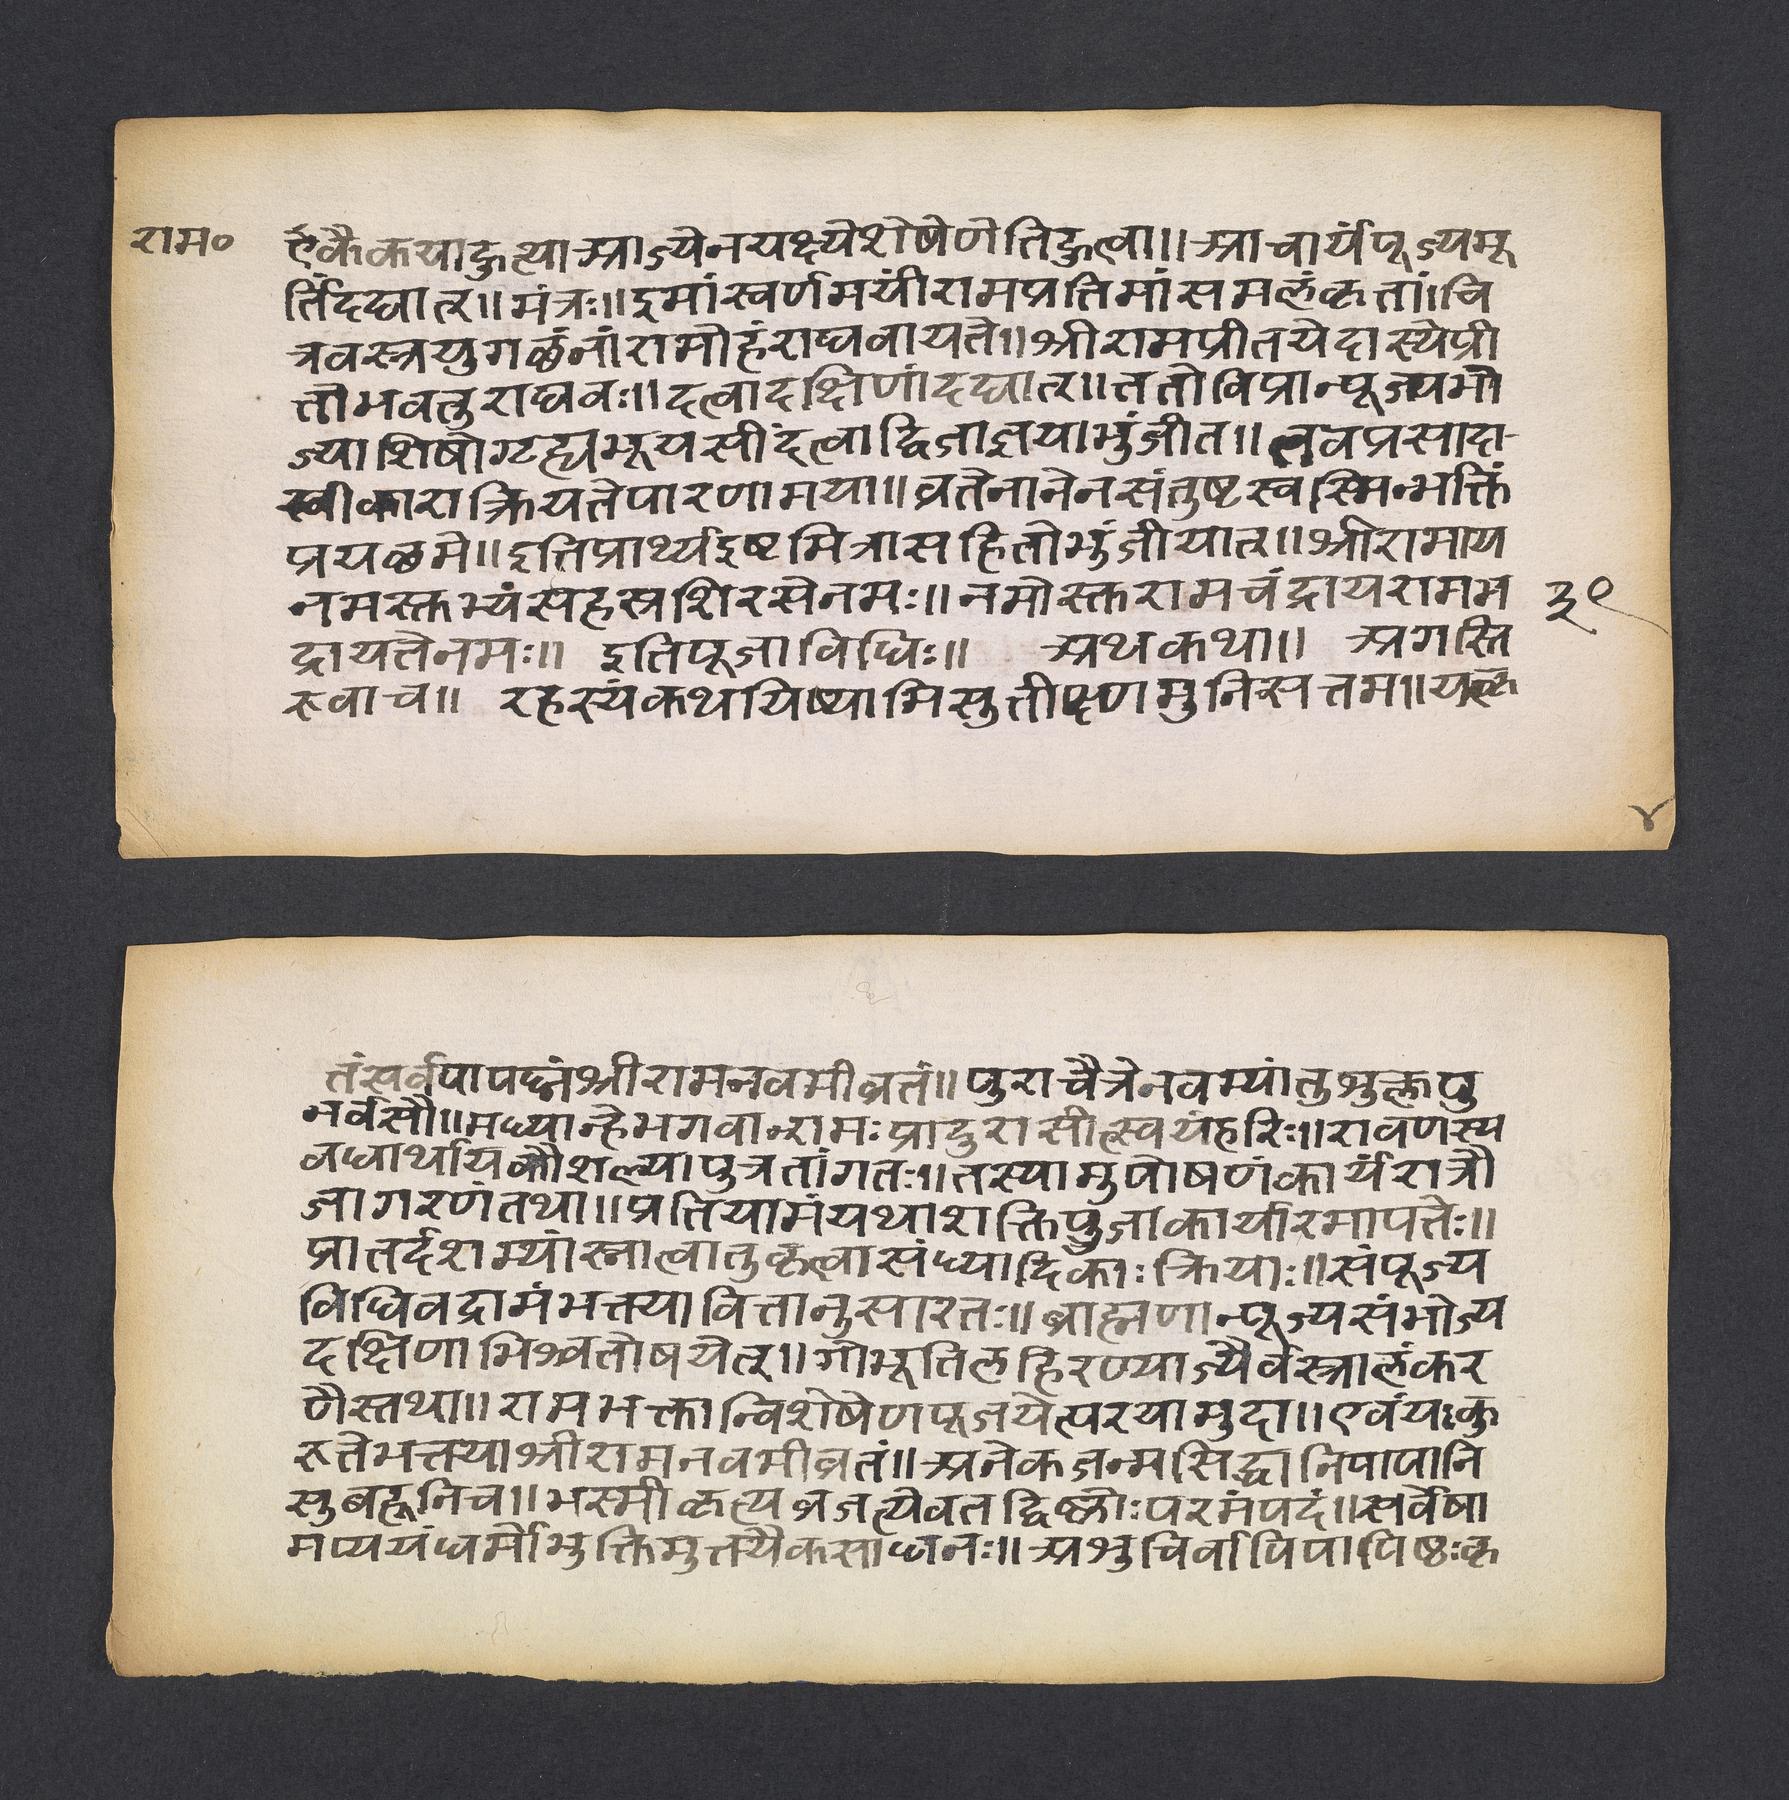 राम० ऐकैकयाहुत्याआज्येनयक्ष्येशेषेणेतिहुत्वा॥ आचार्यंपूज्यमू
र्तिंदद्यात्॥ मंत्रः॥ इमांस्वर्णमयींरामप्रतिमांसमलंकृतां॥ चि
त्रवस्त्रयुगछंनां रामोहंराघवायते॥ श्रीरामप्रीतयेदास्येप्री
तोभवतुराघवः॥ दत्वादक्षिणांदद्यात्॥ ततोविप्रान्पूज्यभो
ज्याशिषोगृह्यभूयसींदत्वाद्विजाज्ञयाभुंजीत॥ तवप्रसादा-
स्वीकाराक्रियतेपारणामया॥ व्रतेनानेनसंतुष्टस्वस्मिन्भक्तिं
प्रयछमे॥ इतिप्रार्थ्यइष्टमित्रासहितोभुंजीयात्॥ श्रीरामाय
नमस्तभ्यंसहस्त्रशिरसेनमः॥ नमोस्तरामचंद्रायरामभ
द्रायतेनमः॥ इतिपूजाविधिः॥ अथकथा॥ अगस्ति
रुवाच॥ रहस्यंकथयिष्यामिसुतीक्ष्णमुनिसत्तम॥ यत्कृ
३९
४
तंसर्वपापघ्नंश्रीरामनवमीव्रतं॥ पुराचैत्रेनवम्यांतुशुक्लपु
नर्वसौ॥ मध्यान्हेभगवान्रामःप्रादुरासीत्स्वयंहरिः॥ रावणस्य
वधार्थायकौशल्यापुत्रतांगतः॥ तस्यामुपोषणंकार्यंरात्रौ
जागरणंतथा॥ प्रतियामंयथाशक्तिपुंजाकार्यारमापतेः॥
प्रातर्दशम्यांस्नात्वातुकृत्वासंध्यादिकाःक्रियाः॥ संपूज्य
विधिवद्रामंभत्तयावित्तानुसारतः॥ ब्राह्मणान्पूज्यसंभोज्य
दक्षिणाभिश्वतोषयेत्॥ गोभूतिलहिरण्याज्यैर्वस्त्रालंकर
णैस्तथा॥ रामभक्तान्विशेषेणपूजयेत्परयामुदा॥ एवंयःकु
रुतेभत्तयाश्रीरामनवमीव्रतं॥ अनेकजन्मसिद्धानिपापानि
सुबहूनिच॥ भस्मीकृत्यव्रजत्येवतद्विष्णोःपरमंपदं॥ सर्वेषा
मप्ययंधर्मोभुक्तिमुत्तयैकसाधनः॥ अशुचिर्वापिपापिष्ठःकृ